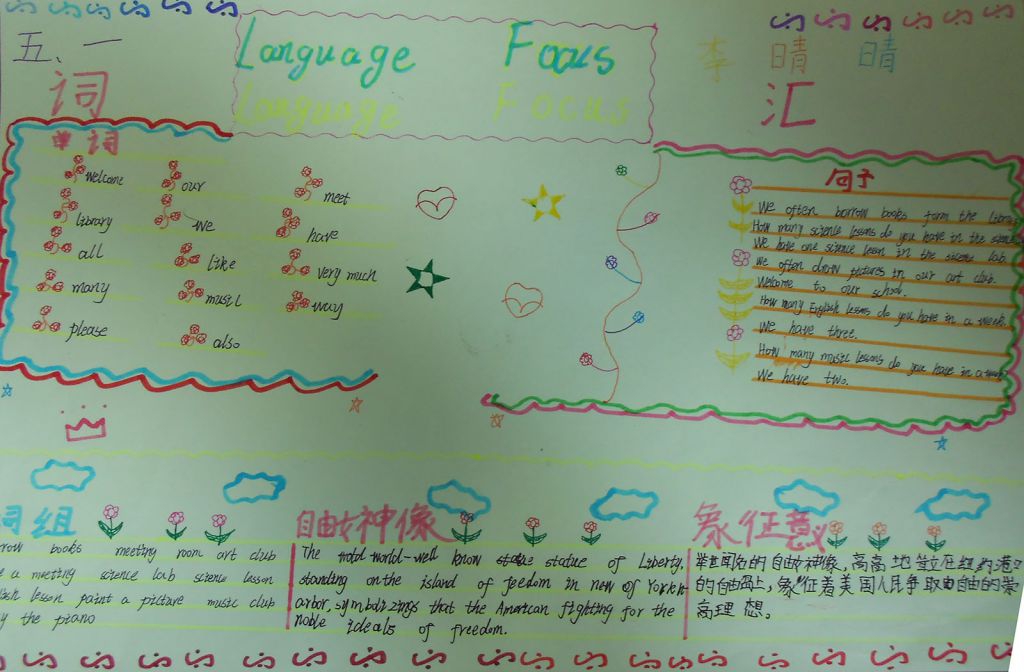 五、一
Language Focus
Language Focus
李晴晴
词
汇
单词
welcome our meet
library we have
all like very much
many music way
please also
句子
We often borrow books form the library
How many science lessons do you have in the
We have one science lesson in the science lab.
We often draw pictures in our art club.
Welcome to our school.
How many English lessons do you have in a week.
We have three.
How many music lessons do you have in a week
We have two.
词组
row books meeting room art club
e a meeting science lab science lesson
lish lesson paint a picture music club
y the piano
自由女神像
The world-well know statue of Liberty,
standing on the island of feedom in new of York
arbor, symbolizings that the American fighting for the
noble ideals of freedom.
象征意义
举世闻名的自由神像,高高地竖立在纽约港口
的自由岛上,象征着美国人民争取自由的崇
高理想。